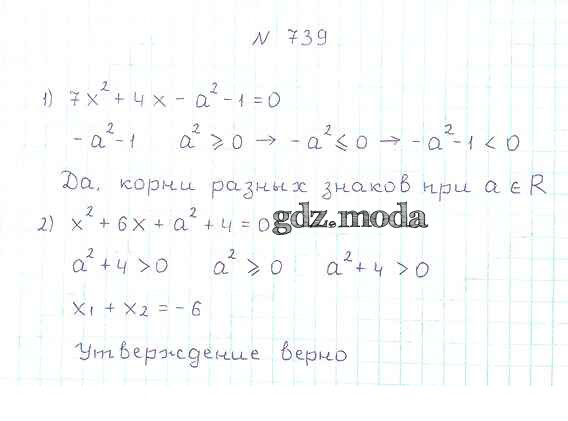 N 739
1) 7x² + 4x - a² - 1 = 0
- a² - 1   a² ⩾ 0 → - a² ⩽ 0 → - a² - 1 < 0
Да, корни разных знаков при a ∈ R
2) x² + 6x + a² + 4 = 0
gdz.moda
a² + 4 > 0   a² ⩾ 0   a² + 4 > 0
x₁ + x₂ = - 6
Утверждение верно